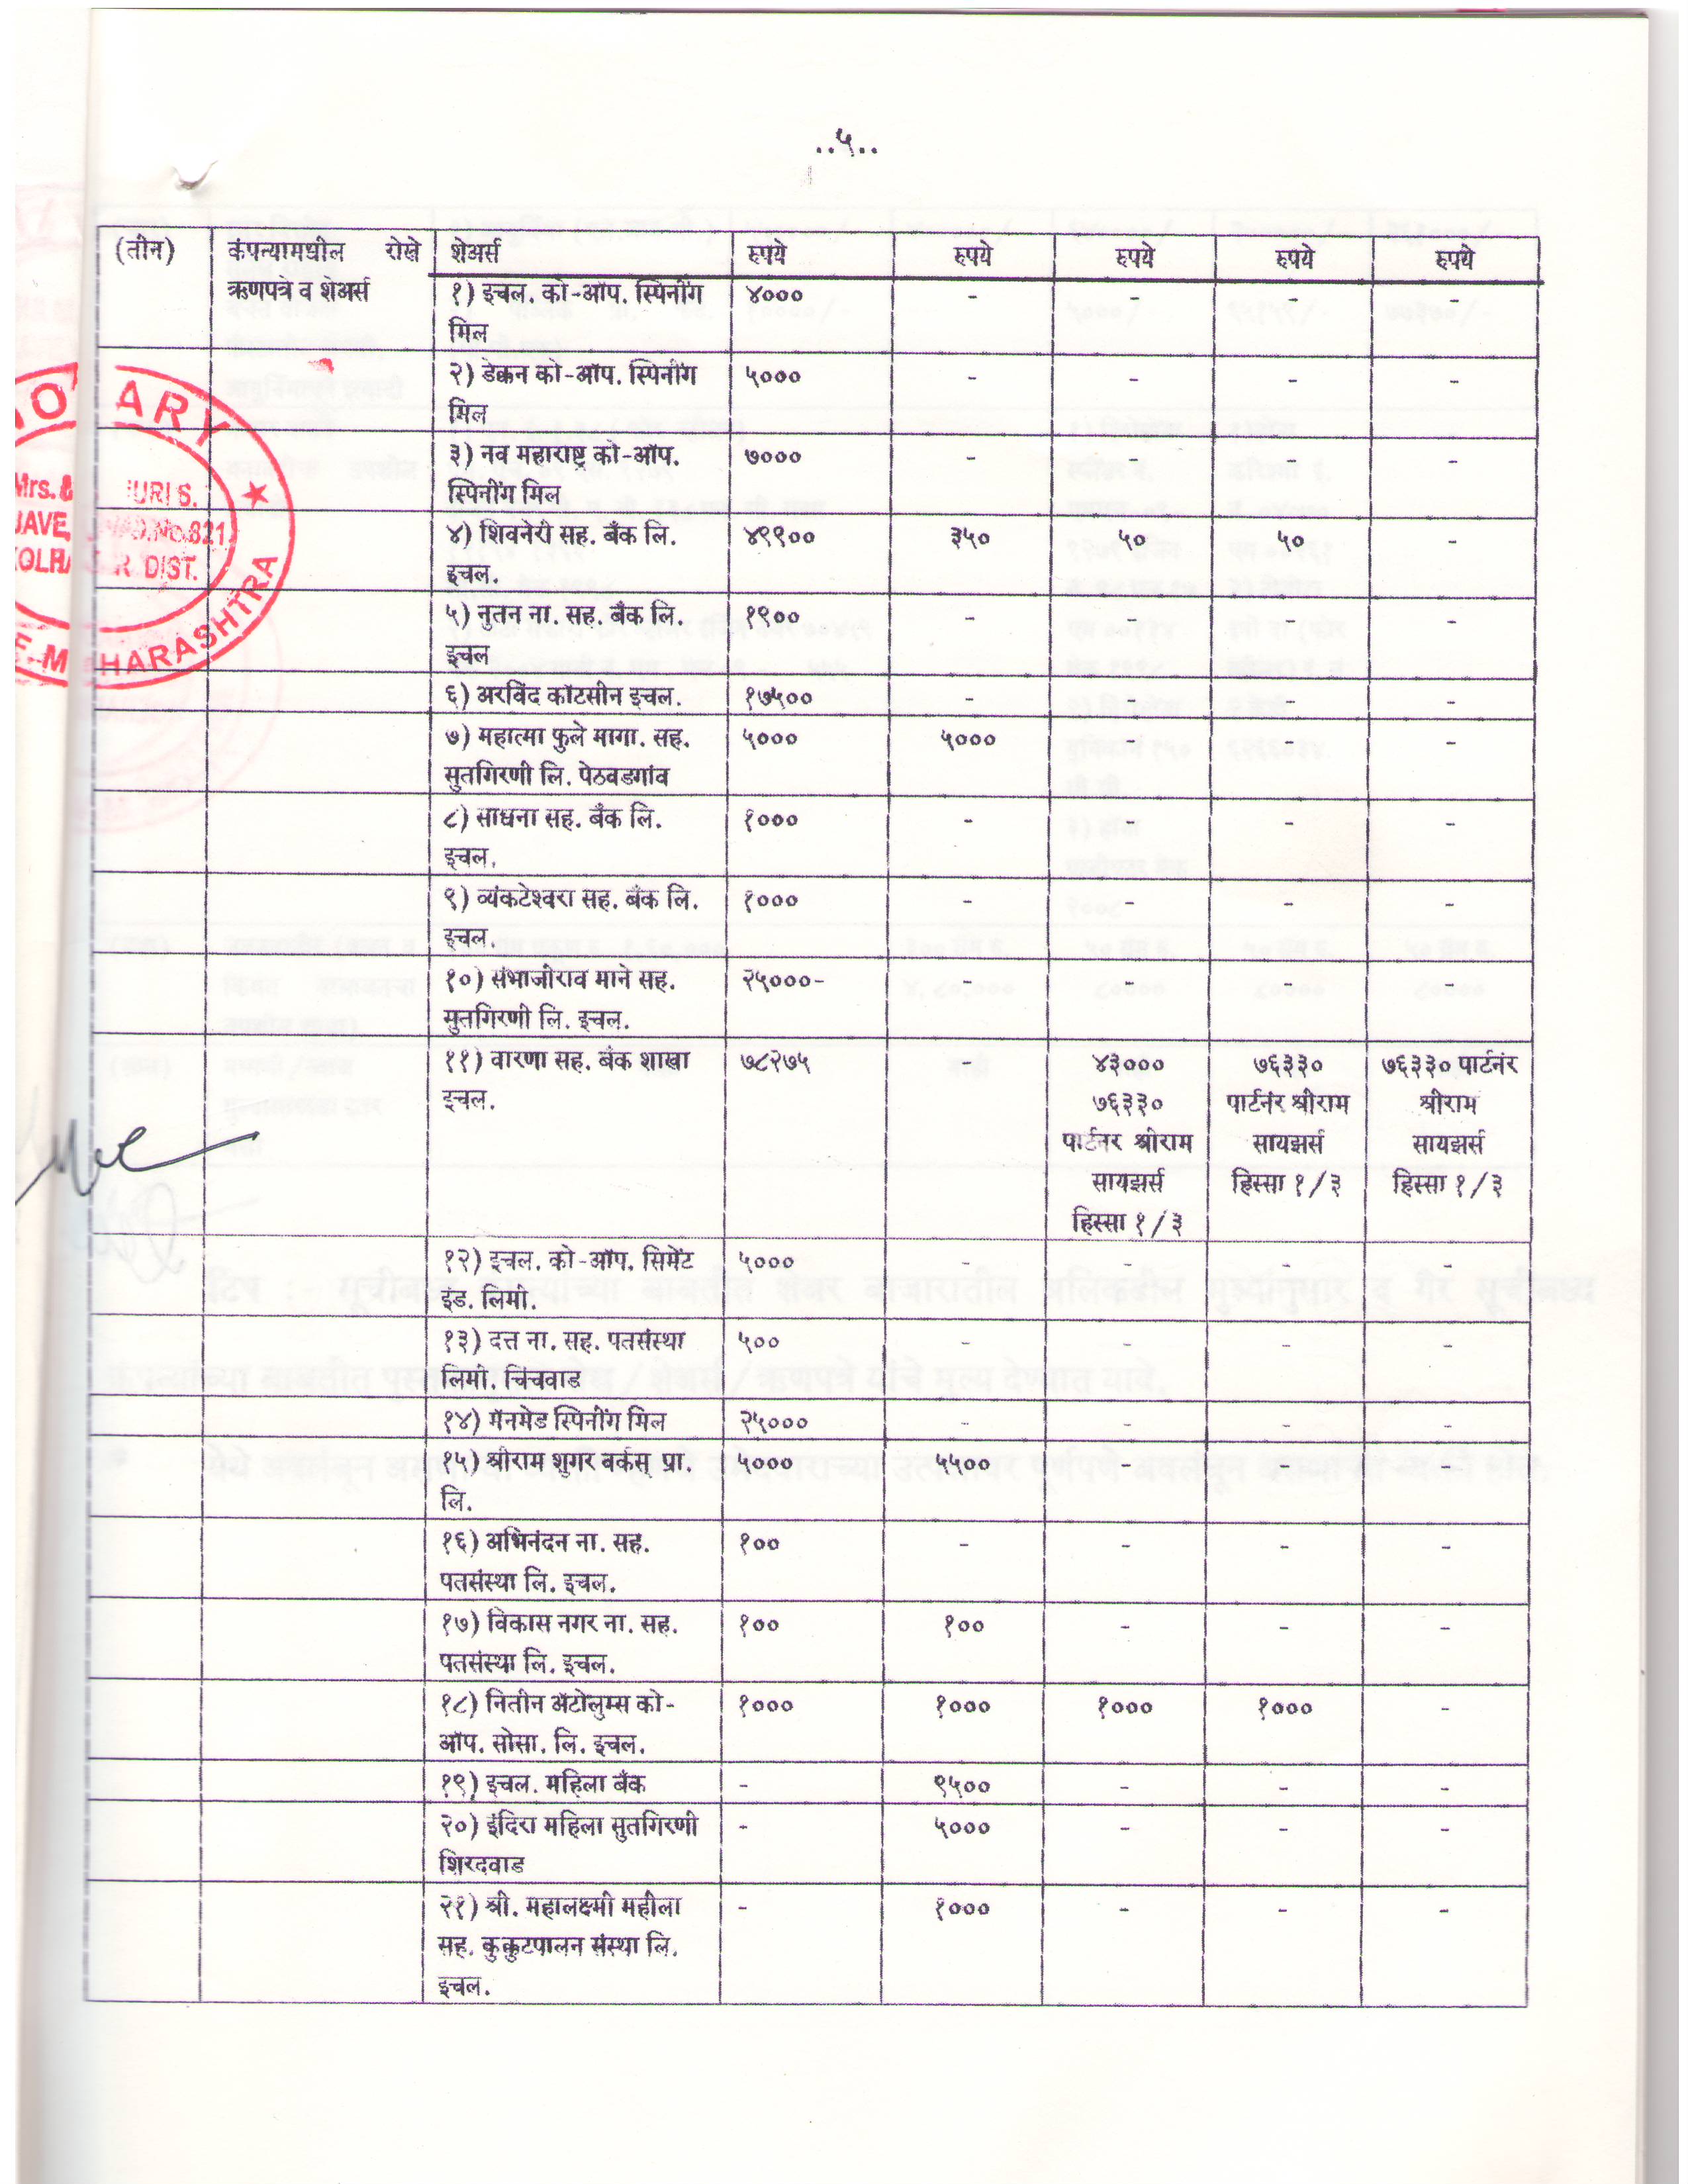 ..५..
(तीन) कंपन्यामधील रोखे शेअर्स रुपये रुपये रुपये रुपये रुपये
ऋणपत्रे व शेअर्स १) इचल. को-ऑप. स्पिनींग ४००० - - - -
मिल
२) डेक्कन को-ऑप. स्पिनींग ५००० - - - -
मिल
३) नव महाराष्ट्र को-ऑप. ७००० - - - -
स्पिनींग मिल
४) शिवनेरी सह. बँक लि. ४९९०० ३५० ५० ५० -
इचल.
५) नुतन ना. सह. बँक लि. १९०० - - - -
इचल
६) अरविंद कॉटसीन इचल. १७५०० - - - -
७) महात्मा फुले मागा. सह. ५००० ५००० - - -
सुतगिरणी लि. पेठवडगांव
८) साधना सह. बँक लि. १००० - - - -
इचल.
९) व्यंकटेश्वरा सह. बँक लि. १००० - - - -
इचल.
१०) संभाजीराव माने सह. २५०००- - - -
सुतगिरणी लि. इचल.
११) वारणा सह. बँक शाखा ७८२७५ - ४३००० ७६३३० ७६३३० पार्टनर
इचल. ७६३३० पार्टनर श्रीराम श्रीराम
पार्टनर श्रीराम सायझर्स सायझर्स
सायझर्स हिस्सा १/३ हिस्सा १/३
हिस्सा १/३
१२) इचल. को-ऑप. सिमेंट ५००० - - - -
इंड. लिमी.
१३) दत्त ना. सह. पतसंस्था ५०० - - - -
लिमी. चिंचवाड
१४) मॅनमेड स्पिनींग मिल २५००० - - - -
१५) श्रीराम शुगर वर्कस् प्रा. ५००० ५५०० - - -
लि.
१६) अभिनंदन ना. सह. १०० - - - -
पतसंस्था लि. इचल.
१७) विकास नगर ना. सह. १०० १०० - - -
पतसंस्था लि. इचल.
१८) नितीन अ‍ॅटोलुम्स को- १००० १००० १००० १००० -
ऑप. सोसा. लि. इचल.
१९) इचल. महिला बँक - ९५०० - - -
२०) इंदिरा महिला सुतगिरणी - ५००० - - -
शिरदवाड
२१) श्री. महालक्ष्मी महीला - १००० - - -
सह. कुक्कुटपालन संस्था लि.
इचल.
OTARY
Mrs. URI S.
JAVE, No.821
DIST.
MAHARASHTRA